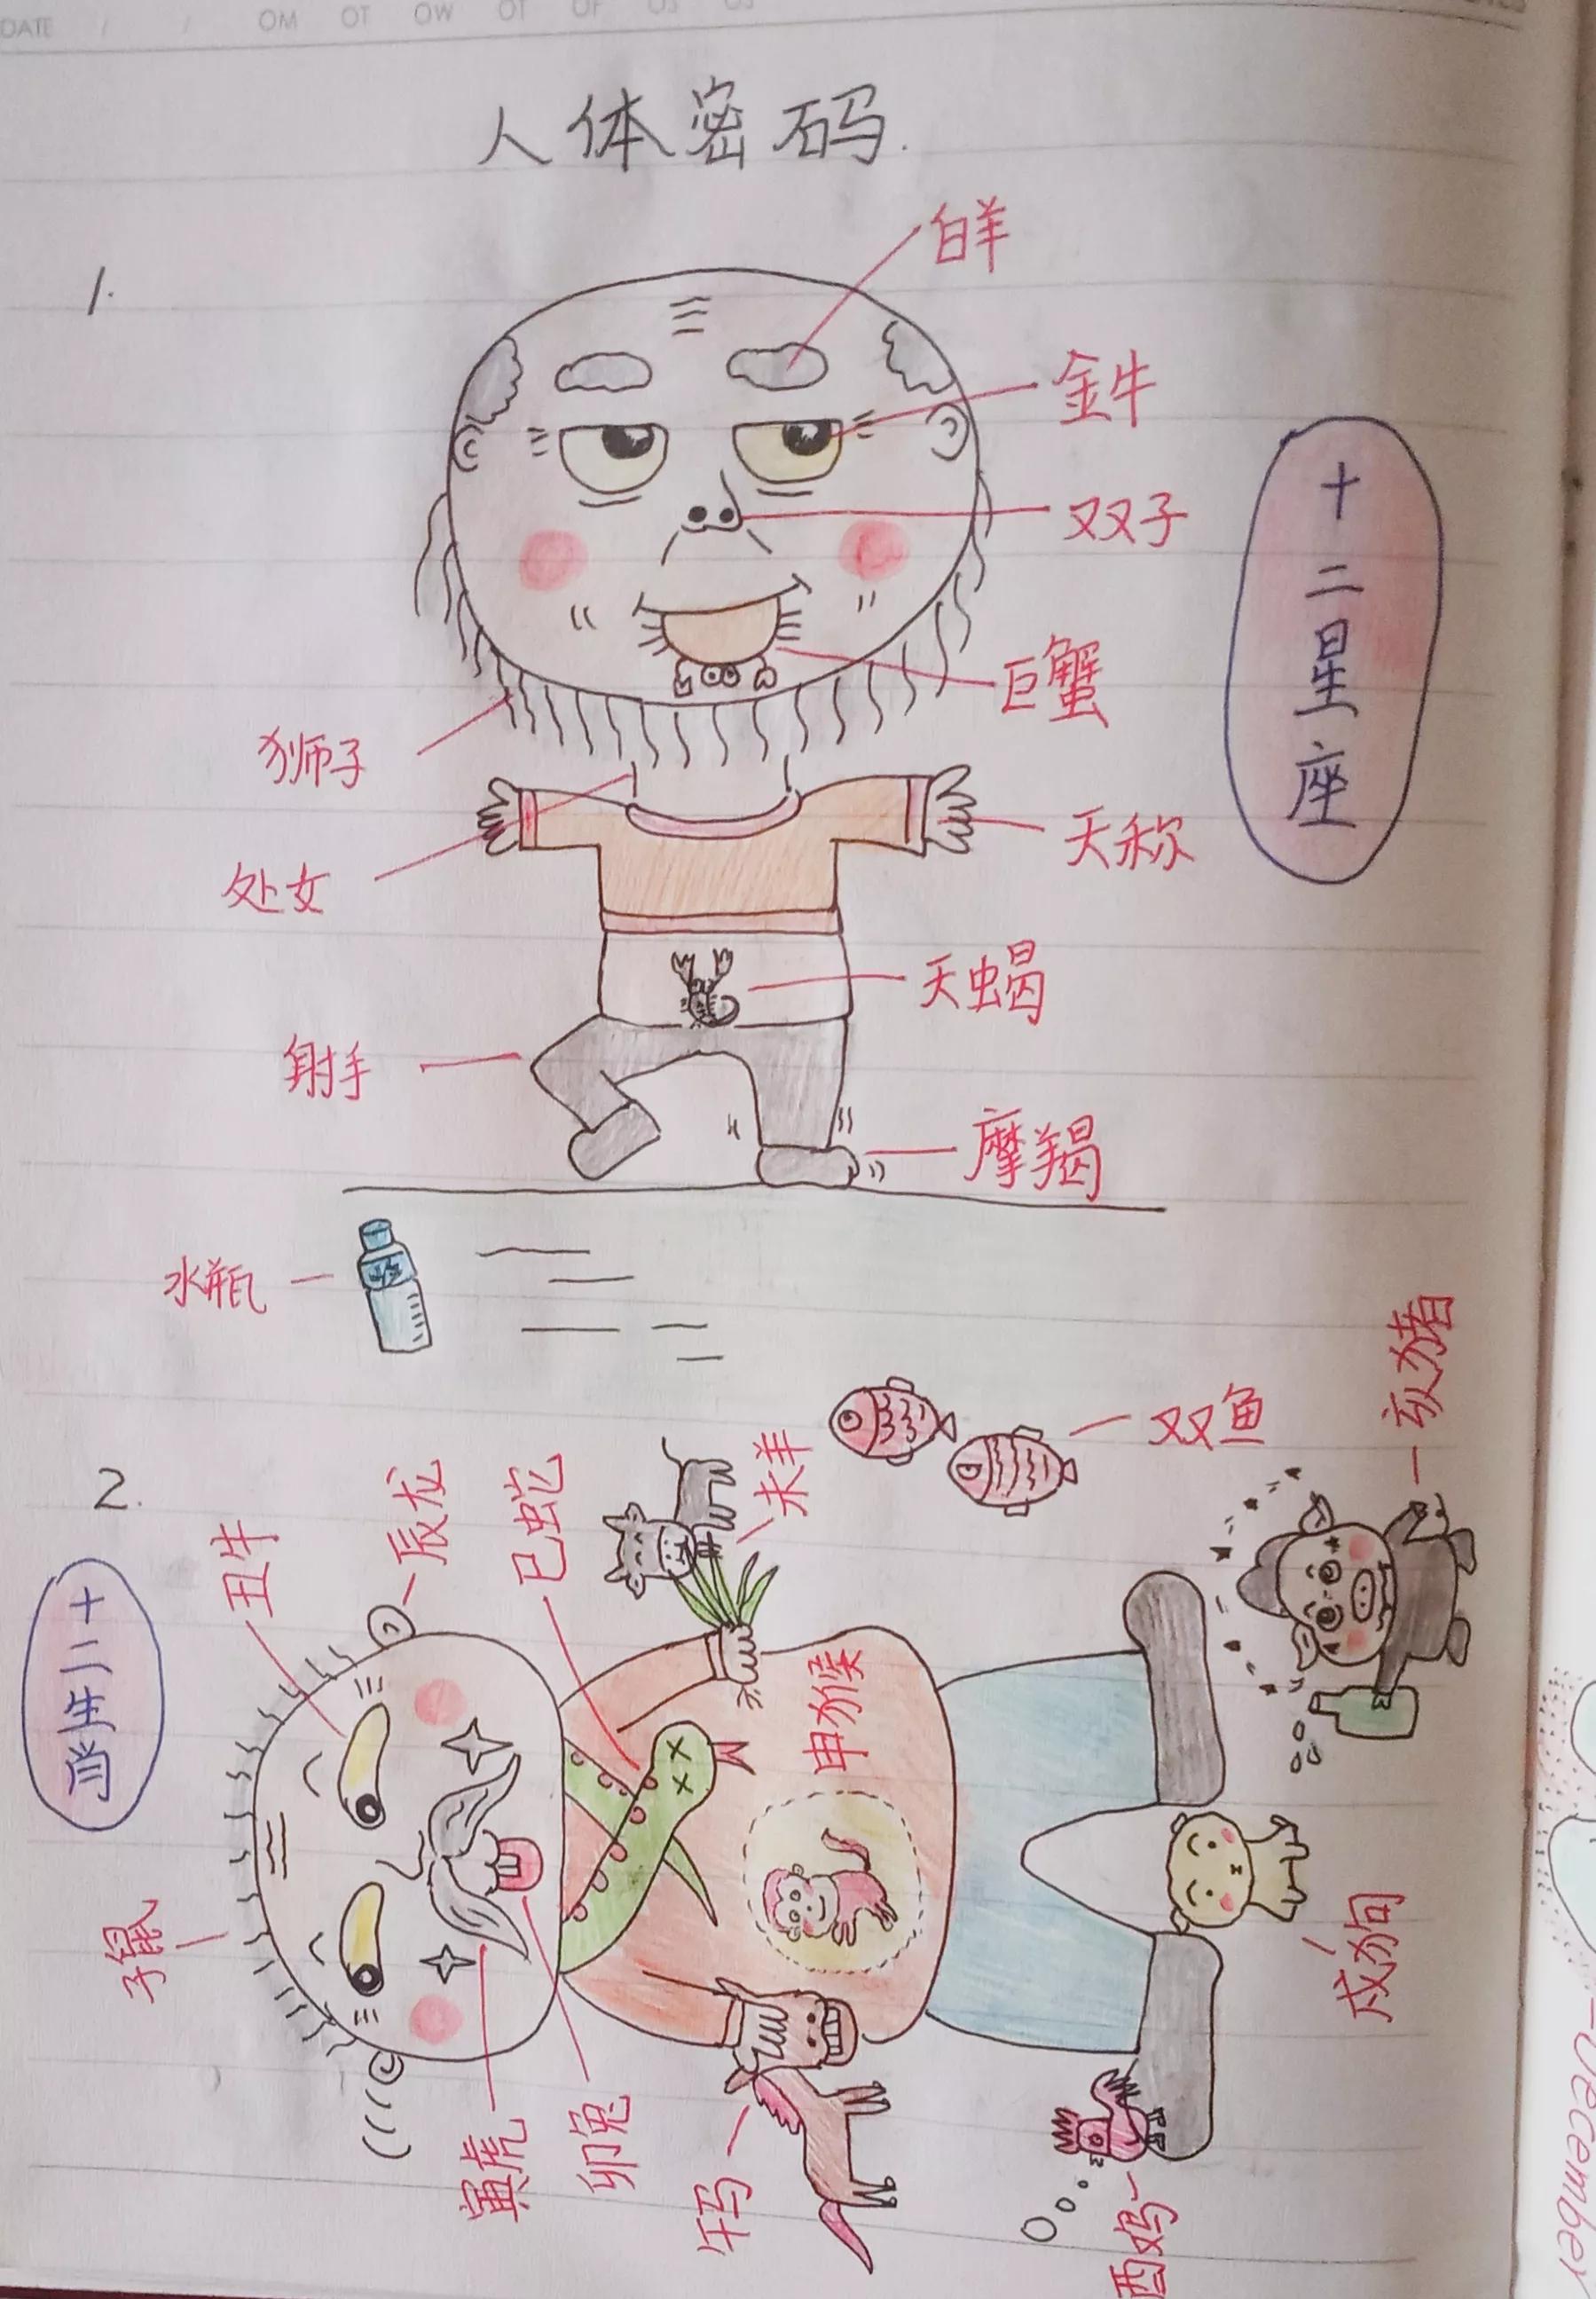 DATE / / OM OT OW OT OF OS OS
人体密码.
1.
白羊
金牛
双子
巨蟹
狮子
处女
天称
天蝎
射手
摩羯
水瓶
双鱼
十二星座
2.
十二生肖
子鼠
丑牛
寅虎
卯兔
辰龙
巳蛇
午马
未羊
申猴
酉鸡
戌狗
亥猪
December